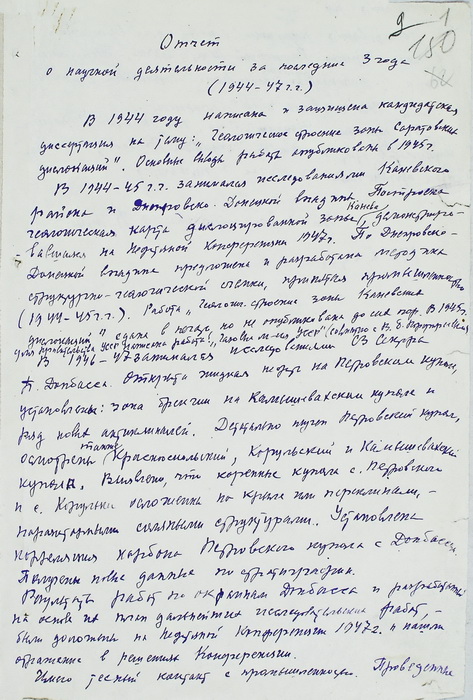 2 1
150
Отчет
о научной деятельности за последние 3 года
(1944-47 г.г.)
В 1944 году написана и защищена кандидатская
диссертация на тему: "Геологическое строение зоны Саратовских
дислокаций". Основные выводы работы опубликованы в 1945 г.
В 1944-45 г.г. занимался исследованиями Каневского
района и Днепровско-Донецкой впадины. Построена
геологическая карта дислоцированной зоны Канева, демонстриро-
вавшаяся на Нефтяной Конференции 1947 г. По Днепровско-
Донецкой впадине предложена и разработана методика
структурно-геологической съемки, принятая промышленностью
(1944-45 г.г.). Работа "Геологич. строение зоны Каневских
дислокаций" сдана в печать, но не опубликована до сих пор. В 1945 г.
для правительства УССР доложена работа "Газовые м-ния УССР" (совместно с В. Б.
В 1946-47 занимался исследованиями СЗ Сектора
Донбасса. Открыта жидкая нефть на Петровском куполе,
установлены: зона брекчии на Камышевахском куполе и
ряд новых антиклиналей. Детально изучен Петровский купол,
осмотрены также Краснооскольский, Корульский и Камышевахский
купола. Выявлено, что коренные купола с. Петровского
и с. Корульки осложнены по краям их перекатами, -
паразитарными соляными структурами. Установлена
корреляция карбона Петровского купола с Донбассом.
Получены новые данные по стратиграфии.
Результаты работ по окраинам Донбасса и разработанный
на основе их план дальнейших исследовательских работ, -
были доложены на Нефтяной Конференции 1947 г. и нашли
отражение в решениях Конференции.
Имею тесный контакт с промышленностью. Проведенные